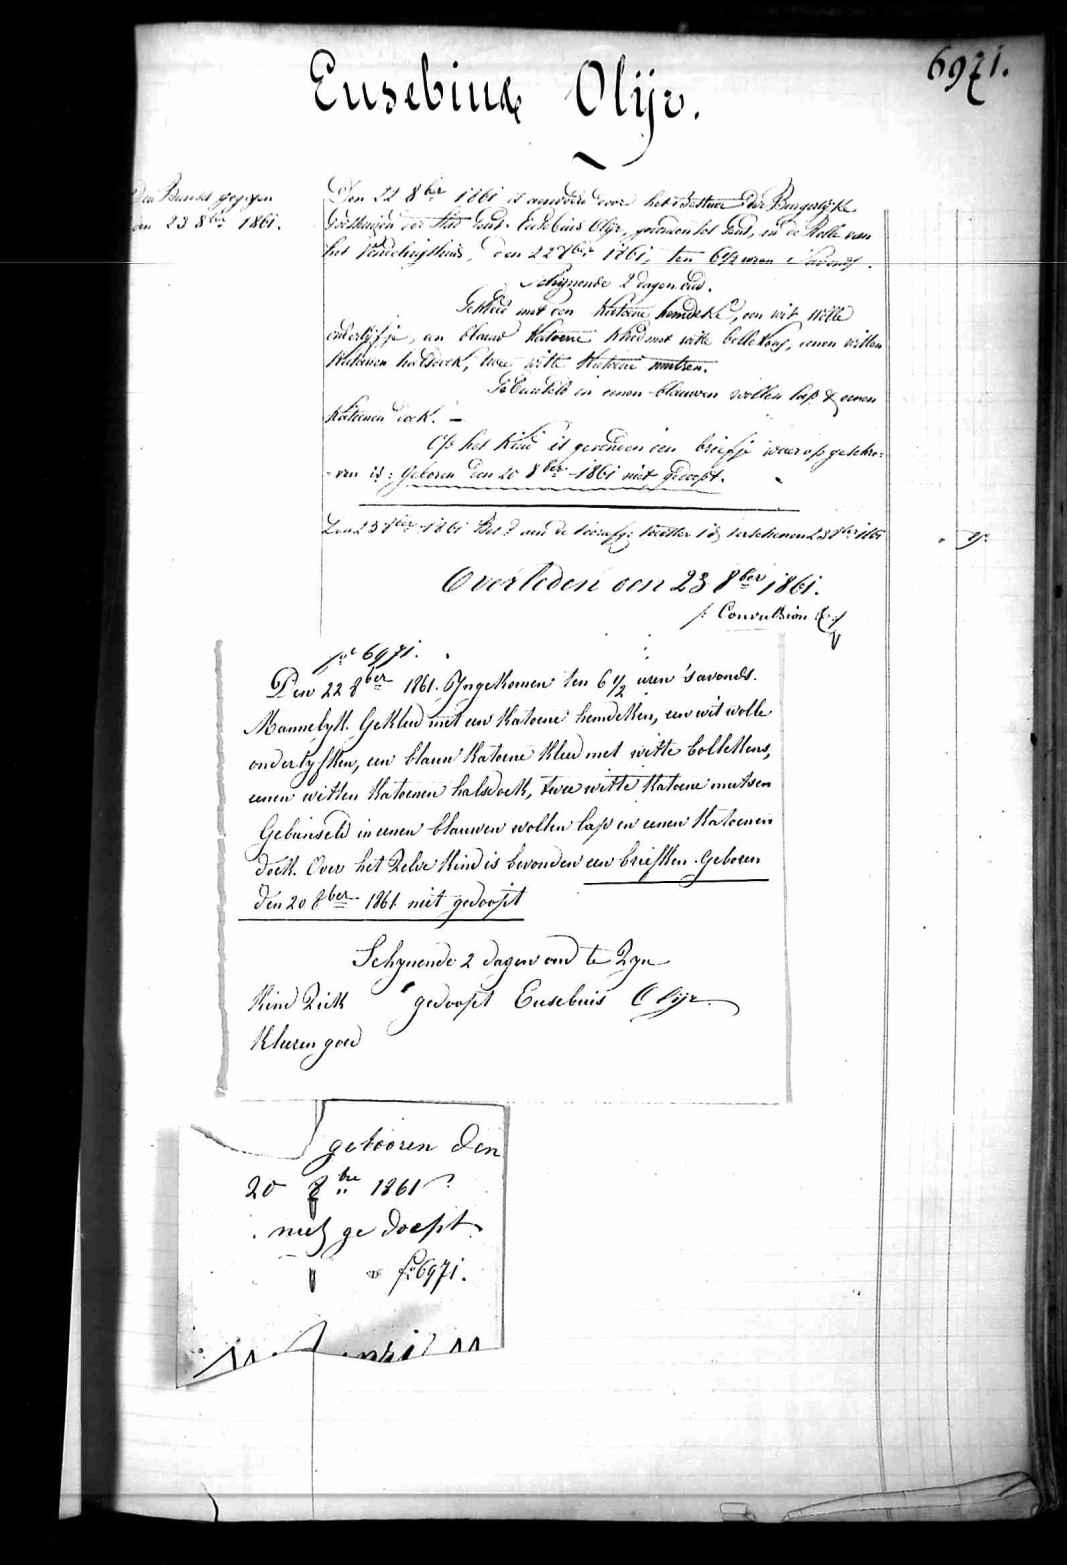 6971.
Eusebius Olijr.
den 23 8ber 1861.
Den 22 8ber 1861 is door het Bestuur der Burgerlijke
Godshuizen der Stad Gent Eusebius Olijr, gevonden tot Gent, in de Rolle van
het Vondelingshuis, den 22 8ber 1861, ten 6 1/2 uren 'Savonds.
Schijnende 2 dagen oud.
Gekleed met een katoene hemdeke, een wit wolle
onderlijfje, een blauw katoene kleed met witte bollekens, eenen witten
katoenen halsdoek, twee witte katoene mutsen.
Gebunseld in eenen blauwen wollen lap & eenen
katoenen doek. —
Op het kind is gevonden een briefje waer op geschre-
-ven is: Geboren den 20 8ber 1861 niet gedoopt.
Den 23 8ber 1861 aen de
Overleden den 23 8ber 1861.
/: Convulsion :/
fo 6971.
Den 22 8ber 1861. Ingekomen ten 6 1/2 uren 's avonds.
Mannelyk. Gekleed met een katoene hemdeken, een wit wolle
onderlyfken, een blauw katoene kleed met witte bollekens,
eenen witten katoenen halsdoek, twee witte katoene mutsen
Gebunseld in eenen blauwen wollen lap en eenen katoenen
doek. Over het Zelve Kind is bevonden een briefken. Geboren
den 20 8ber 1861 niet gedoopt
Schynende 2 dagen oud te Zyn
Kind Ziek gedoopt Eusebius Olijr.
Kleeren goed
gebooren den
20 8bre 1861
niet gedoept
fo 6971.